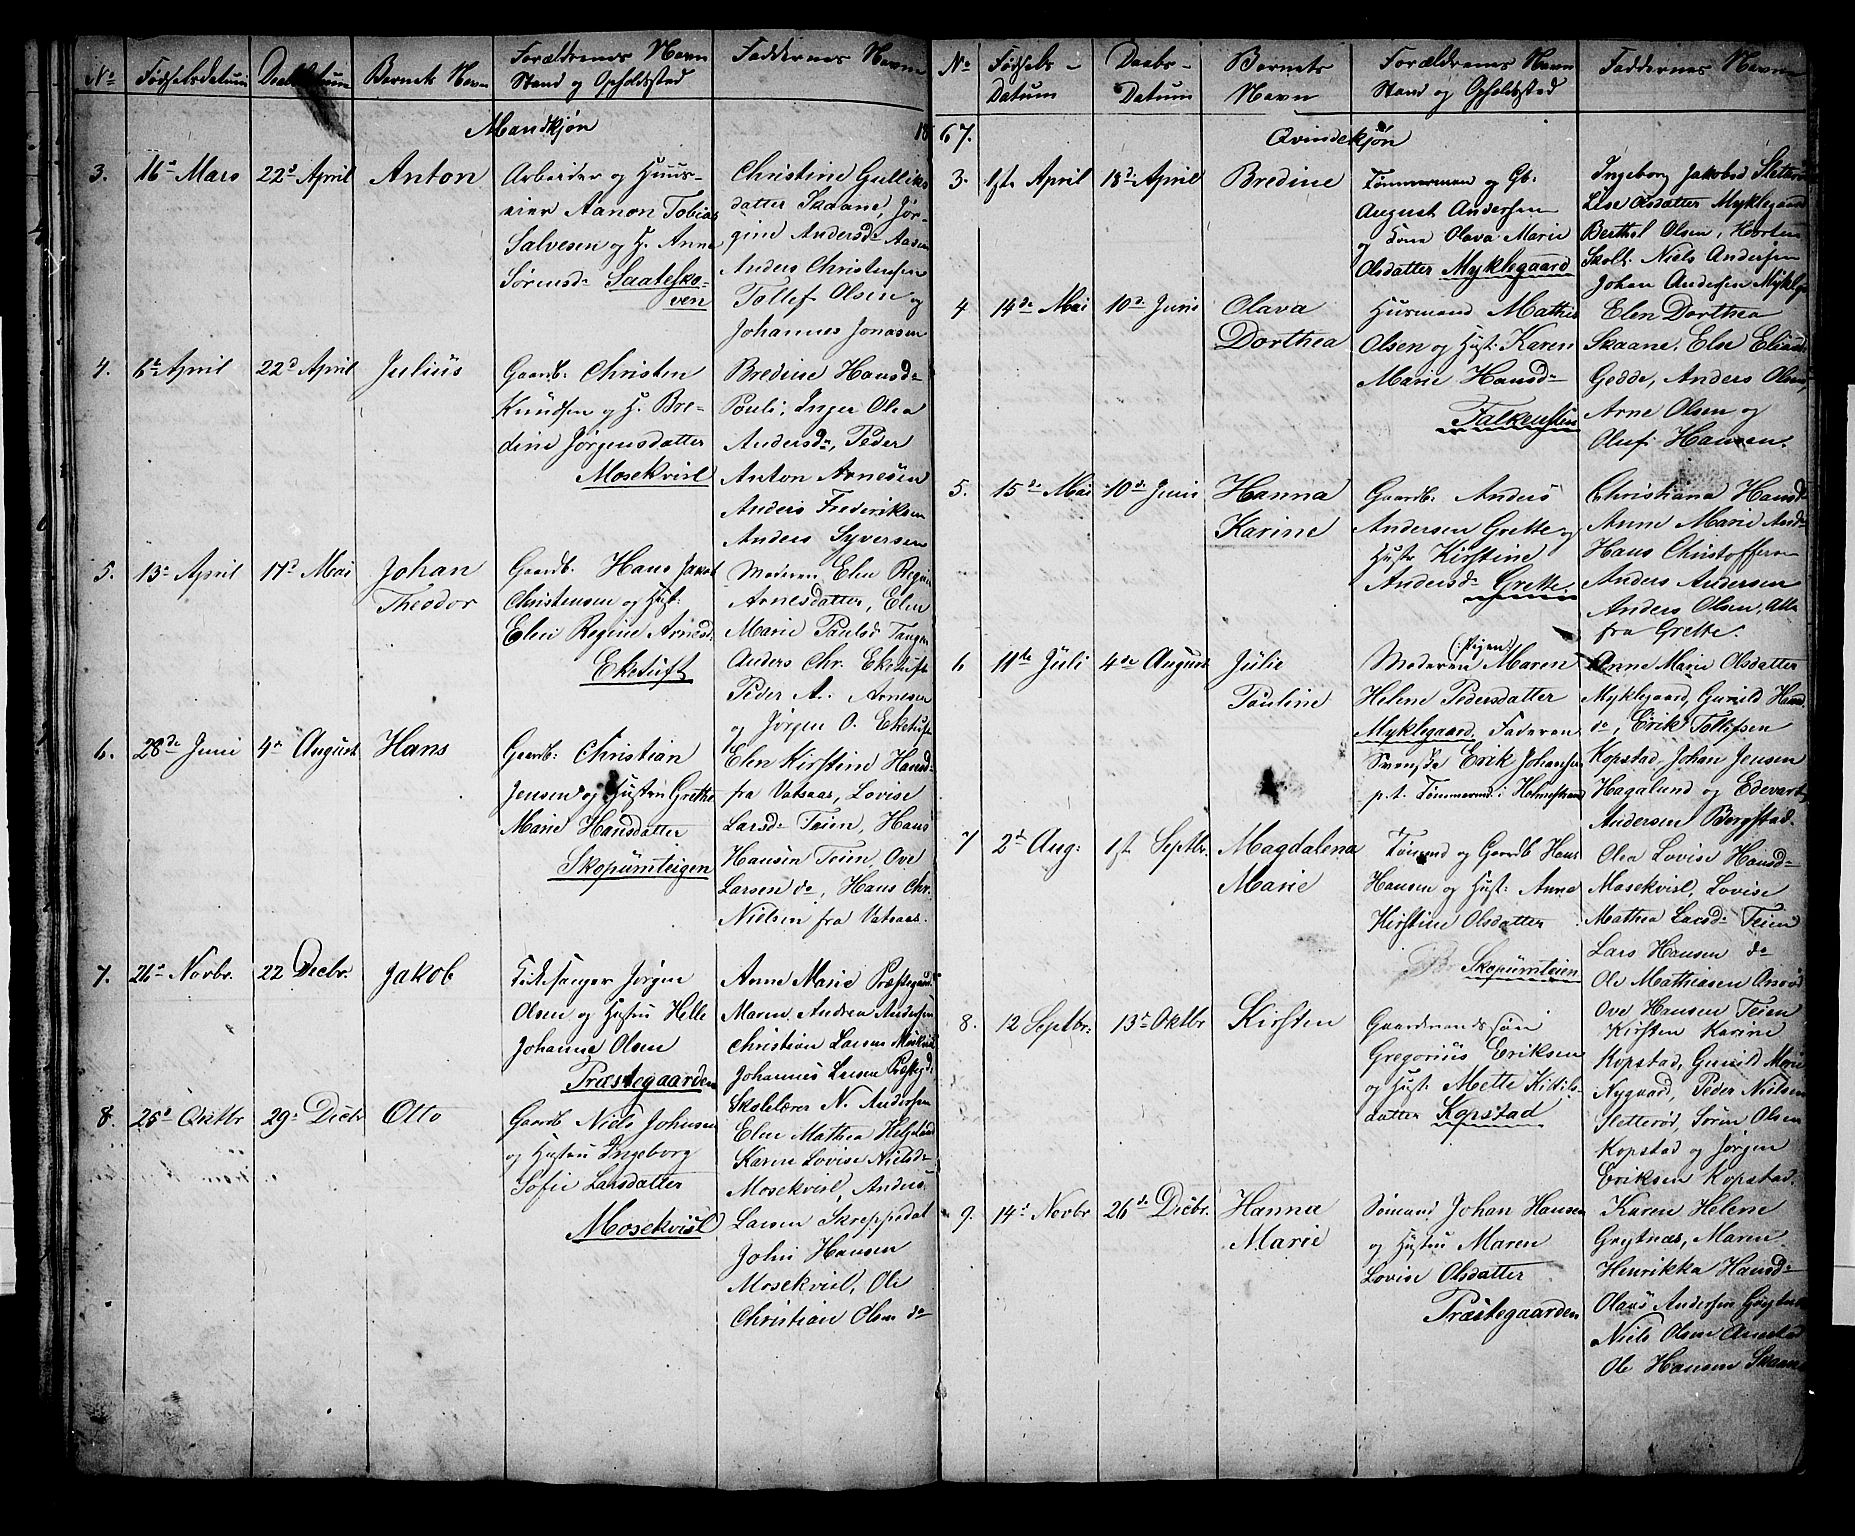 No
Fødselsdatum
Daabsdatum
Barnets Navn
Forældrenes Navn
Stand og Opholdssted
Faddernes Navne
Mandkjøn
18
3.
16de Mars
22d April
Anton
Arbeider og Huus-
eier Aanon Tobias
Salvesen og H. Anne
Sørensd.
Christine Gulliks
datter Skaane, Jør-
gine Andersd.
Anders Christensen
Tollef Olsen og
Johannes Jonasen
4.
6te April
22d April
Julius
Gaardb. Christen
Knudsen og H. Bre-
dine Jørgensdatter
Mosekvisl
Bredine Hansd.
Pouli, Inger Olea
Andersdr, Peder
Anton Arnesen
Anders Frederiksen
Anders Syversen
5.
13. April
17d Mai
Johan
Theodor
Gaardb. Hans Jakob
Christensen og Hust.
Elen Regine Arnesd.
Eketuft
Moderen Elen Regine
Arnesdatter, Elen
Marie Paulsd Tangen
Anders Chr. Eketuft
Peder A. Arnesen
og Jørgen O. Eketuft
6.
28de Juni
4de August
Hans
Gaardb. Christian
Jensen og Hustru Grethe
Marie Hansdatter
Skopumteigen
Elen Kirstine Hansd
fra Vatsaas, Lovise
Larsd. Teien, Hans
Hansen Teien, Ove
Larsen do, Hans Chr.
Nielsen fra Vatsaas.
7.
26. Novbr.
22 Decbr.
Jakob
Jørgen
Olsen og Hustru Helle
Johanne Olsen
Præstegaarden
Anne Marie Præstegaard
Maren Andrea Andersen
Christian Larsen
Johannes Larsen Præstegd
Skolelærer N. Andersen
8.
25d Oktbr
29. Decbr
Otto
Gaardb Niels Johnsen
og Hustru Ingeborg
Sofie Larsdatter
Mosekvisl
Elen Mathea Helgeland
Karen Lovise Nielsd.
Mosekvisl, Anders
Larsen Skreppedal
John Hansen
Mosekvisl, Ole
Christian Olsen do
No
Fødsels-
Datum
Daabs-
Datum
Barnets
Navn
Forældrenes Navn
Stand og Opholdssted
Faddernes Navne
67.
Qvindekjøn
3.
1ste April
18d April
Bredine
Tømmermand og Gb.
August Andersen
og Kone Olava Marie
Olsdatter Myklegaard
Ingeborg Jakobsd Sletterød
Lise Olsdatter Myklegaard
Berthel Olsen, Horten
Skolt. Niels Andersen
Johan Andersen Myklegd
4
14de Mai
10d. Juni
Olava
Dorthea
Husmand Mathis
Olsen og Hust. Karen
Marie Hansd.
Falkensten
Elen Dorthea
Skaane, Else Eliasd
Gedde, Anders Olsen,
Arne Olsen og
Oluf Hansen.
5.
15de Mai
10d. Juni
Hanna
Karine
Gaardb. Anders
Andersen Grette og
Hustr Kirstine
Andersd. Grette.
Christiana Hansd.
Anne Marie Andd
Hans Christoffersen
Anders Andersen
Anders Olsen, Alle
fra Grette.
6
11te Juli
4de August
Julie
Pauline
(Pigen)
Moderen Maren
Helene Pedersdatter
Myklegaard, Faderen
Svenske Erik Johansen
p.t. Tømmermd. i Holmestrand
Anne Marie Olsdatter
Myklegaard, Gunild Hansd
do, Erik Tollefsen
Kopstad, Johan Jensen
Hagalund og Edevart
Andersen Borgstad.
7
2d Aug:
1ste Septbr.
Magdalena
Marie
Tømmd og Gaardb Hans
Hansen og Hust: Anne
Kirstine Olsdatter
Skopumteien
Olea Lovise Hansd.
Mosekvisl, Lovise
Mathea Larsd. Teien
Lars Hansen do
Ole Mathiasen
Ove Hansen Teien
8.
12 Septbr.
13de Oktbr
Kirsten
Gaardmandssøn
Gregorius Eriksen
og Hust. Mette Kitils-
datter Kopstad
Kirsten Karine
Kopstad, Gunild Marie
Nygaard, Peder Nielsen
Sletterød, Søren Olsen
Kopstad og Jørgen
Eriksen Kopstad.
9.
14d Novbr
26de Decbr.
Hanna
Marie
Sømand Johan Hansen
og Hustru Maren
Lovise Olsdatter
Præstegaarden
Karen Helene
Grytnæs, Maren
Henrikka Hansd.
Olaus Andersen Grytnæs
Niels Olsen
Ole Hansen Skaane